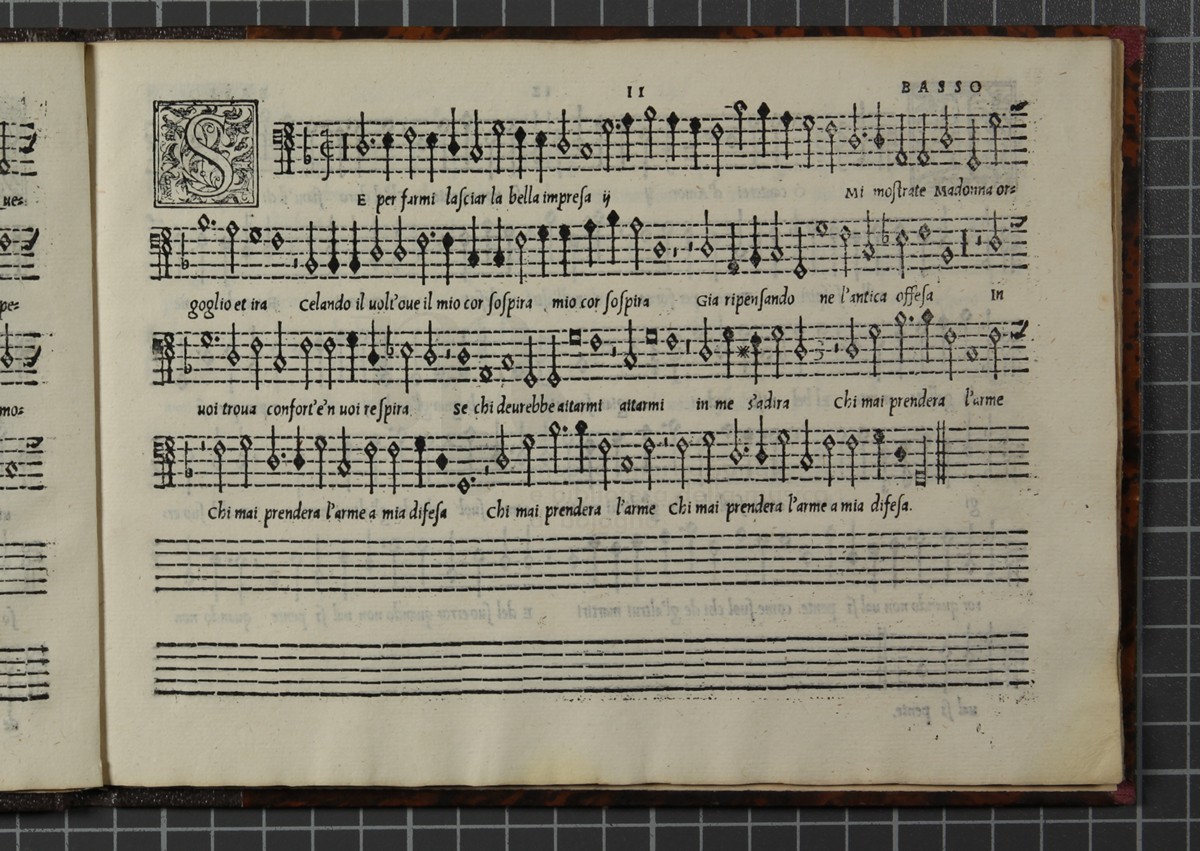 11
BASSO
S
E per farmi laſciar la bella impreſa ij Mi moſtrate Madonna or=
goglio et ira Celando il uolt'oue il mio cor ſoſpira mio cor ſoſpira Gia ripenſando ne l'antica offeſa In
uoi troua confort'e'n uoi reſpira Se chi deurebbe aitarmi aitarmi in me s'adira Chi mai prendera l'arme
Chi mai prendera l'arme a mia difeſa Chi mai prendera l'arme Chi mai prendera l'arme a mia difeſa.
ue=
pe=
mo=